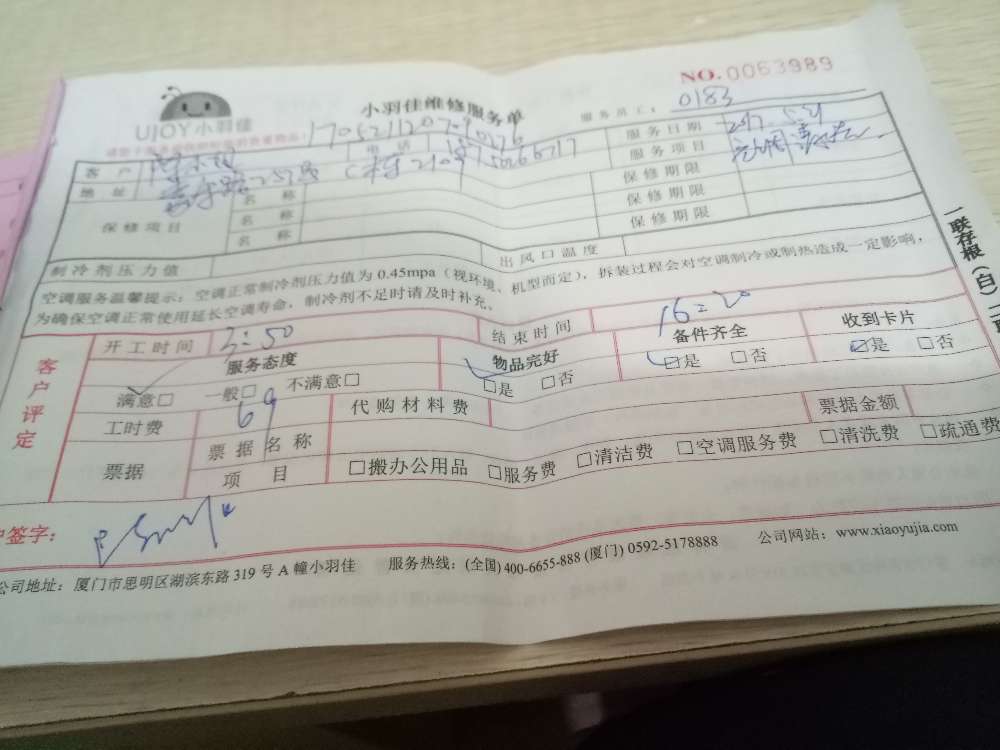 NO.0063989
UJOY小羽佳
小羽佳维修服务单
服务员工: 0183
客户 电话 服务日期 2017.5.21
地址 257号 C栋 服务项目 空调清洗
保修项目 名称 保修期限
名称 保修期限
名称 保修期限
制冷剂压力值 出风口温度
空调服务温馨提示:空调正常制冷剂压力值为0.45mpa(视环境、机型而定),拆装过程会对空调制冷或制热造成一定影响,
为确保空调正常使用延长空调寿命,制冷剂不足时请及时补充。
客户评定
开工时间 3:50 结束时间 16:20
服务态度 物品完好 备件齐全 收到卡片
满意□ 一般□ 不满意□ □是 □否 □是 □否 □是 □否
工时费 69 代购材料费 票据金额
票据 票据名称
项目 □搬办公用品 □服务费 □清洁费 □空调服务费 □清洗费 □疏通费
签字:
公司地址:厦门市思明区湖滨东路319号A幢小羽佳 服务热线:(全国)400-6655-888(厦门)0592-5178888 公司网站:www.xiaoyujia.com
一联存根(白)二